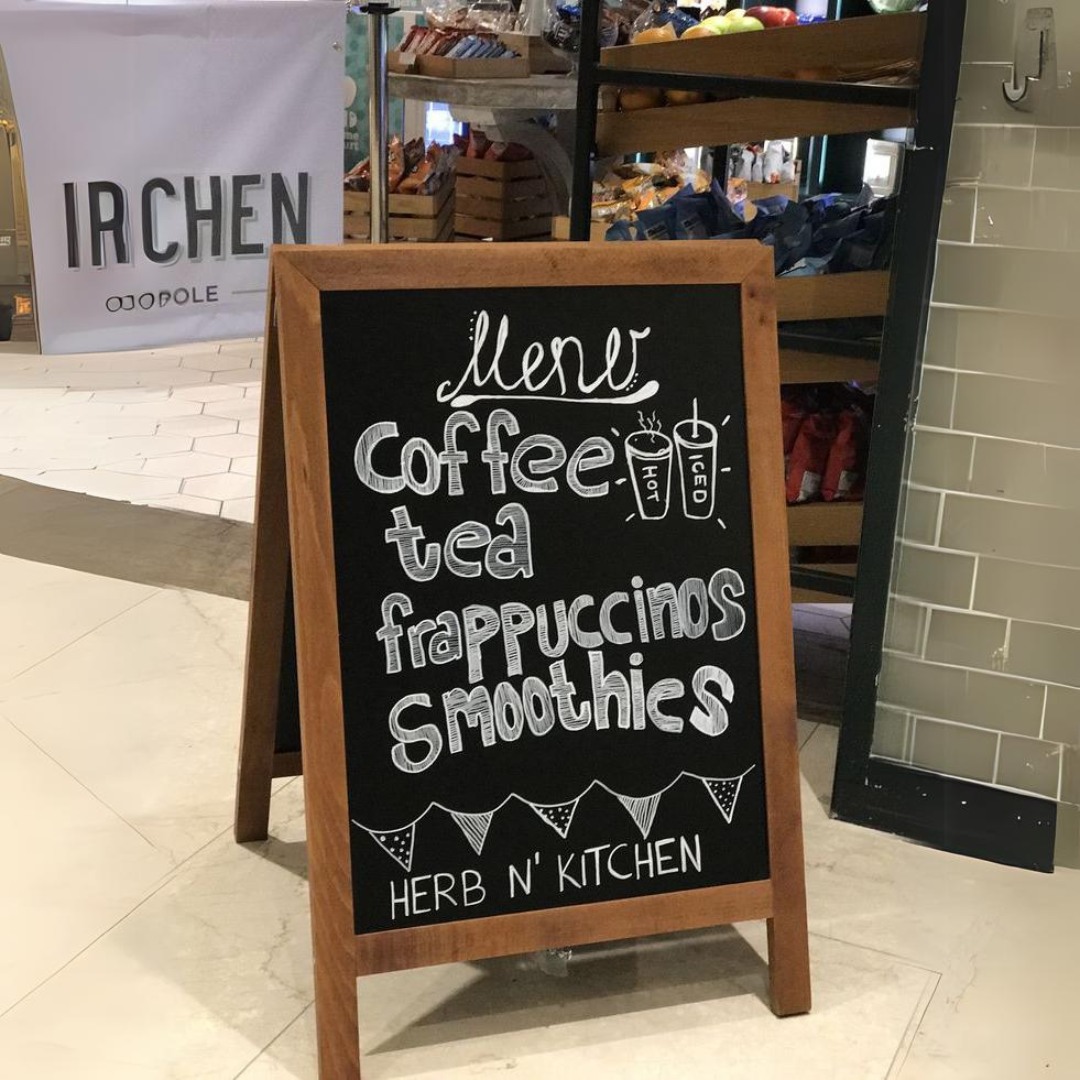 IRCHEN
OJOPOLE
Menu
Coffee
HOT
ICED
tea
frappuccinos
smoothies
HERB N' KITCHEN